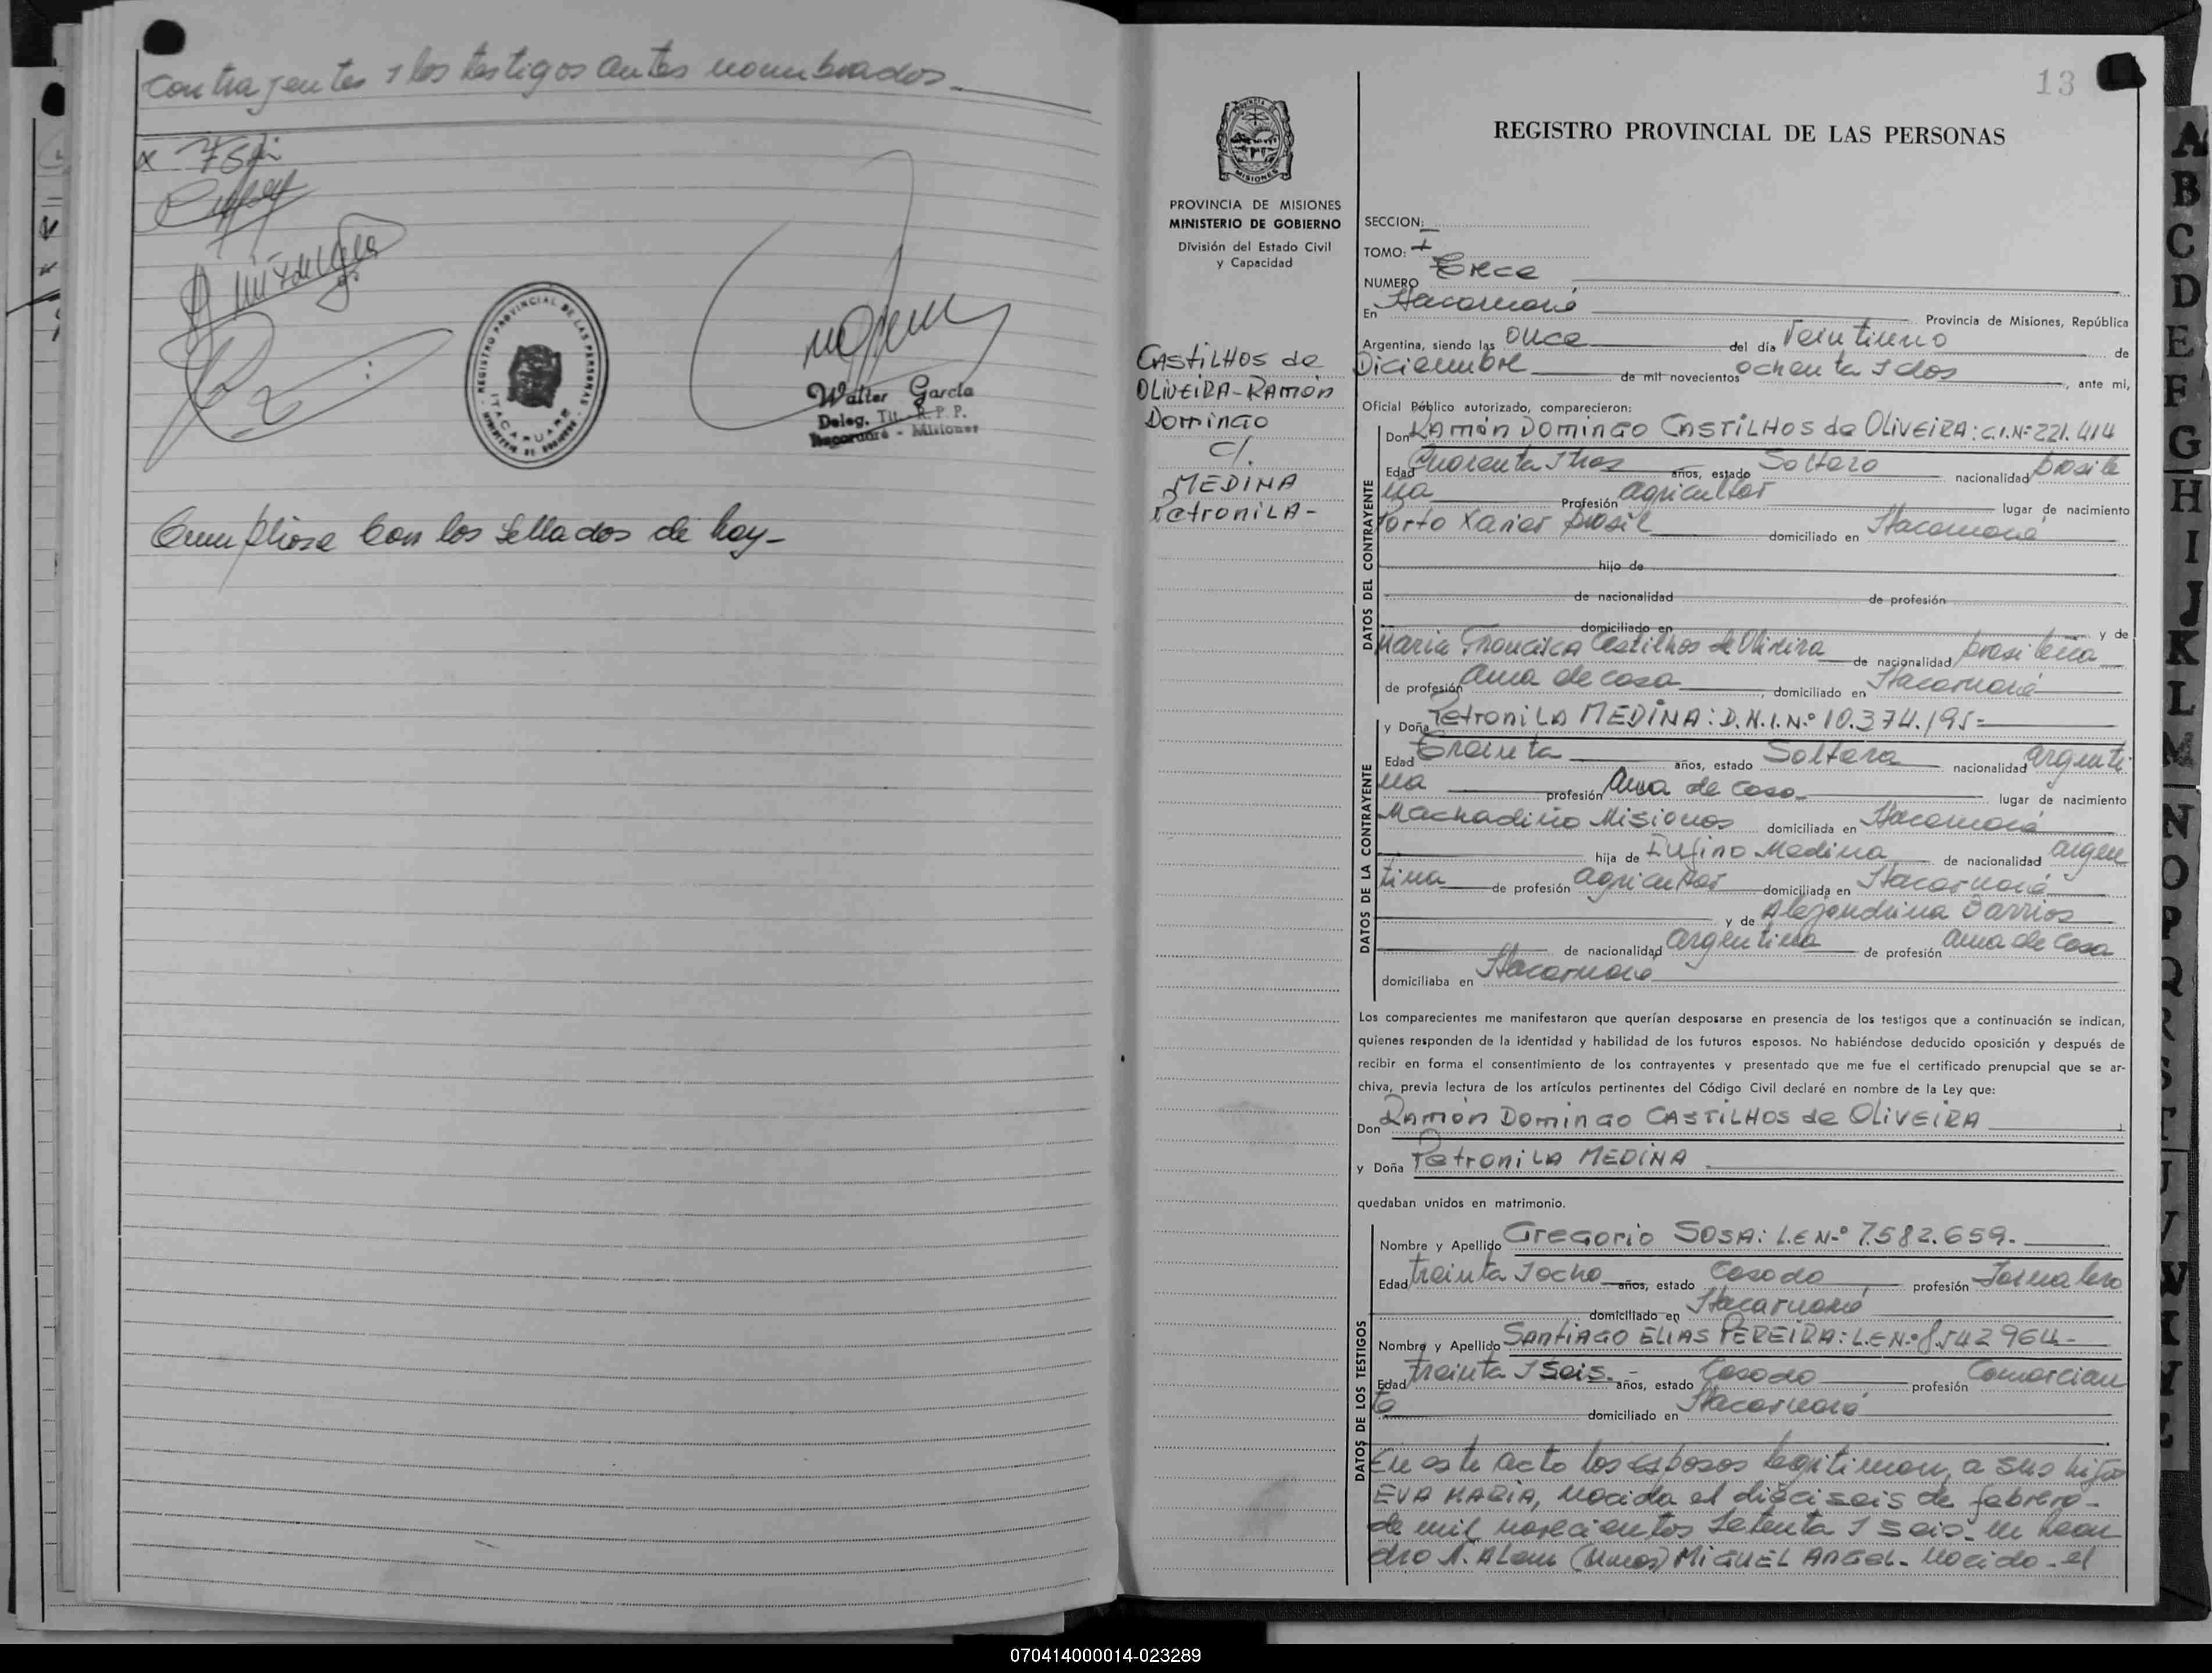 Contrayentes y los testigos antes nombrados.
REGISTRO PROVINCIAL DE LAS PERSONAS
ITACARUARE
Walter García
Deleg. Tit. - R. P. P.
Itacaruaré - Misiones
Cumpliose con los Sellados de hoy-
13
MISIONES
PROVINCIA DE MISIONES
MINISTERIO DE GOBIERNO
División del Estado Civil
y Capacidad
CASTILHOS de
OLIVEIRA-RAMÓN
DOMINGO
c/.
MEDINA
PetroniLA-
REGISTRO PROVINCIAL DE LAS PERSONAS
SECCION: I
TOMO: I
NUMERO Trece
En Itacaruaré Provincia de Misiones, República
Argentina, siendo las Once del día Veintiuno de
Diciembre de mil novecientos ochenta y dos, ante mi,
Oficial Público autorizado, comparecieron:
DATOS DEL CONTRAYENTE
Don RAMÓN DOMINGO CASTILHOS de OLIVEIRA: C.I.Nº 221.414
Edad Cuarenta y tres años, estado Soltero nacionalidad brasile
ña Profesión agricultor lugar de nacimiento
Porto Xavier Brasil domiciliado en Itacaruaré
hijo de
de nacionalidad de profesión
domiciliado en y de
María Francisca Castilhos de Oliveira de nacionalidad brasileña
de profesión ama de casa, domiciliado en Itacaruaré
DATOS DE LA CONTRAYENTE
y Doña PetroniLA MEDINA: D.N.I.N.º 10.374.195-
Edad Treinta años, estado Soltera nacionalidad argenti
na profesión Ama de Casa lugar de nacimiento
Machadiño Misiones domiciliada en Itacaruaré
hija de Rufino Medina de nacionalidad argen
tina de profesión agricultor domiciliada en Itacaruaré
y de Alejandrina Barrios
de nacionalidad argentina de profesión ama de Casa
domiciliaba en Itacaruaré
Los comparecientes me manifestaron que querían desposarse en presencia de los testigos que a continuación se indican,
quienes responden de la identidad y habilidad de los futuros esposos. No habiéndose deducido oposición y después de
recibir en forma el consentimiento de los contrayentes y presentado que me fue el certificado prenupcial que se ar-
chiva, previa lectura de los artículos pertinentes del Código Civil declaré en nombre de la Ley que:
Don RAMÓN DOMINGO CASTILHOS de OLIVEIRA
y Doña PetroniLA MEDINA
quedaban unidos en matrimonio.
DATOS DE LOS TESTIGOS
Nombre y Apellido Gregorio SOSA: L.E Nº 7.582.659.
Edad treinta y ocho años, estado Casado profesión Jornalero
domiciliado en Itacaruaré
Nombre y Apellido SANTIAGO ELIAS PEREIRA: L.E Nº 8.542964-
Edad treinta y seis.- años, estado Casado profesión Comercian
te domiciliado en Itacaruaré
En este acto los esposos legitiman, a sus hijos
EVA MARIA, nacida el dieciseis de febrero-
de mil novecientos setenta y seis- en Lean
dro N. Alem (Mnes) MIGUEL ANGEL- nacido- el
A
B
C
D
E
F
G
H
I
J
K
L
M
N
O
P
Q
R
S
T
U
V
W
X
Y
Z
070414000014-023289